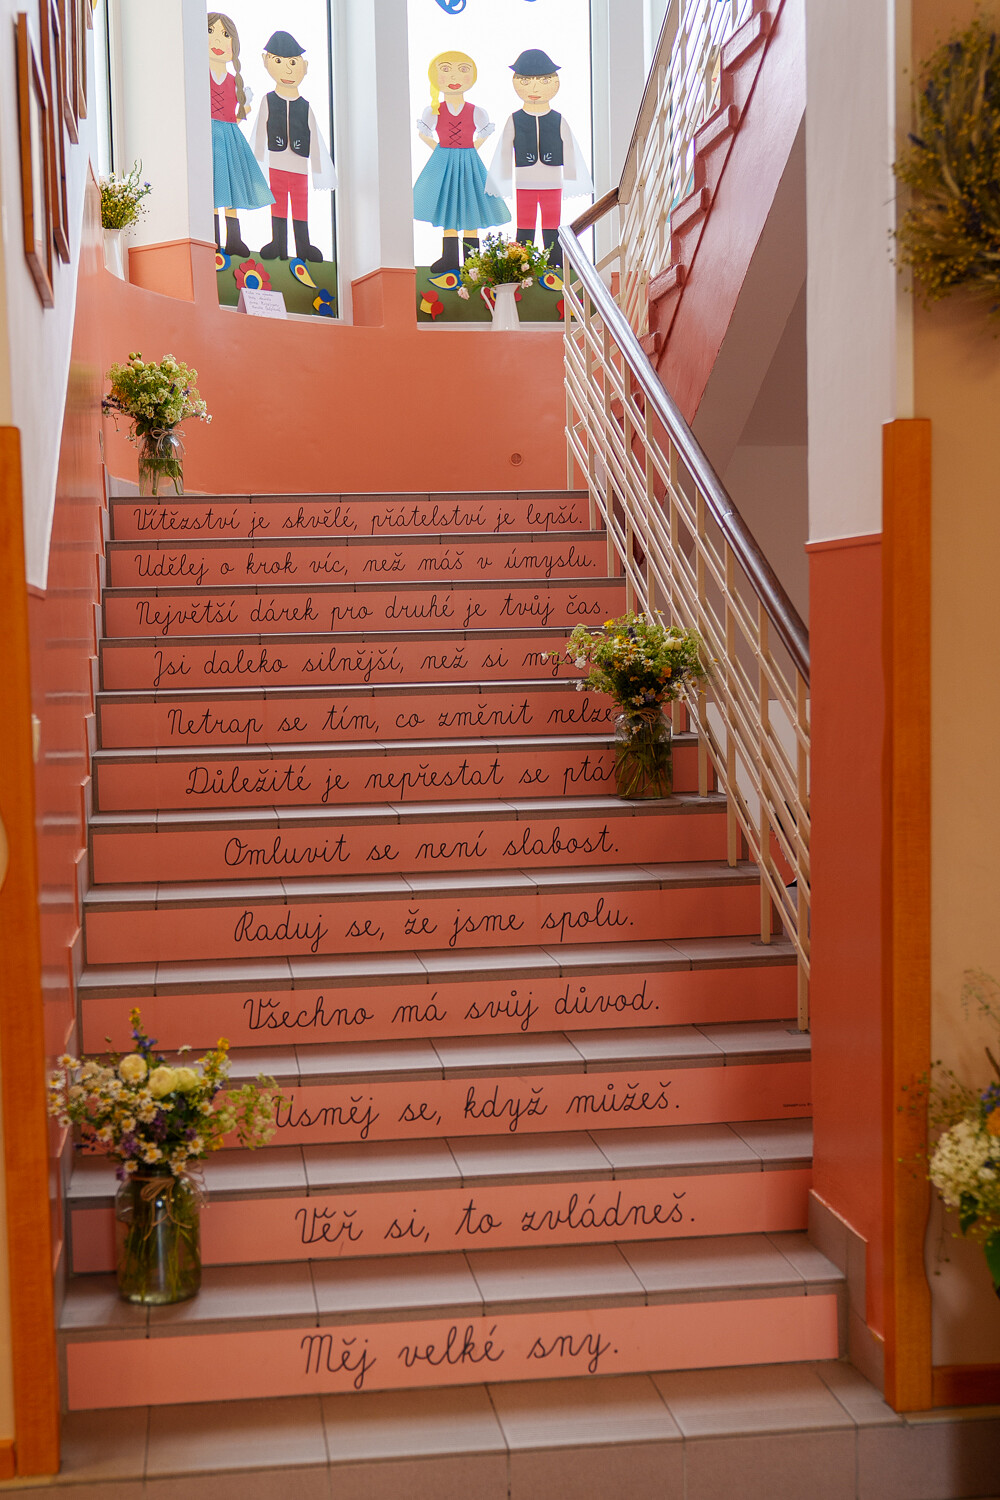 Vítězství je skvělé, přátelství je lepší.
Udělej o krok víc, než máš v úmyslu.
Největší dárek pro druhé je tvůj čas.
Jsi daleko silnější, než si
Netrap se tím, co změnit nelze
Důležité je nepřestat se
Omluvit se není slabost.
Raduj se, že jsme spolu.
Všechno má svůj důvod.
Usměj se, když můžeš.
Věř si, to zvládneš.
Měj velké sny.